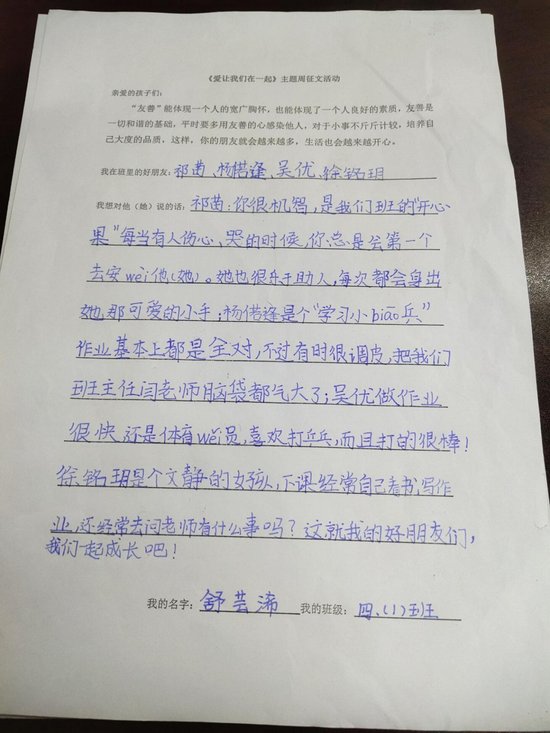 《爱让我们在一起》主题周征文活动
亲爱的孩子们：
“友善”能体现一个人的宽广胸怀，也能体现了一个人良好的素质，友善是
一切和谐的基础，平时要多用友善的心感染他人，对于小事不斤斤计较，培养自
己大度的品质，这样，你的朋友就会越来越多，生活也会越来越开心。
我在班里的好朋友：祁茵、杨偌逢、吴优、徐铭玥
我想对他（她）说的话：祁茵：你很机智，是我们班的“开心
果”每当有人伤心、哭的时候，你总是会第一个
去安wèi他(她)。她也很乐于助人，每次都会身出
她那可爱的小手；杨偌逢是个“学习小biāo兵”
作业基本上都是全对，不过有时很调皮，把我们
班主任闫老师脑袋都气大了；吴优做作业
很快，还是体育wěi员，喜欢打乒乓，而且打的很棒！
徐铭玥是个文静的女孩，下课经常自己看书，写作
业，还经常去问老师有什么事吗？这就我的好朋友们，
我们一起成长吧！
我的名字：舒芸浠 我的班级：四、(1)班